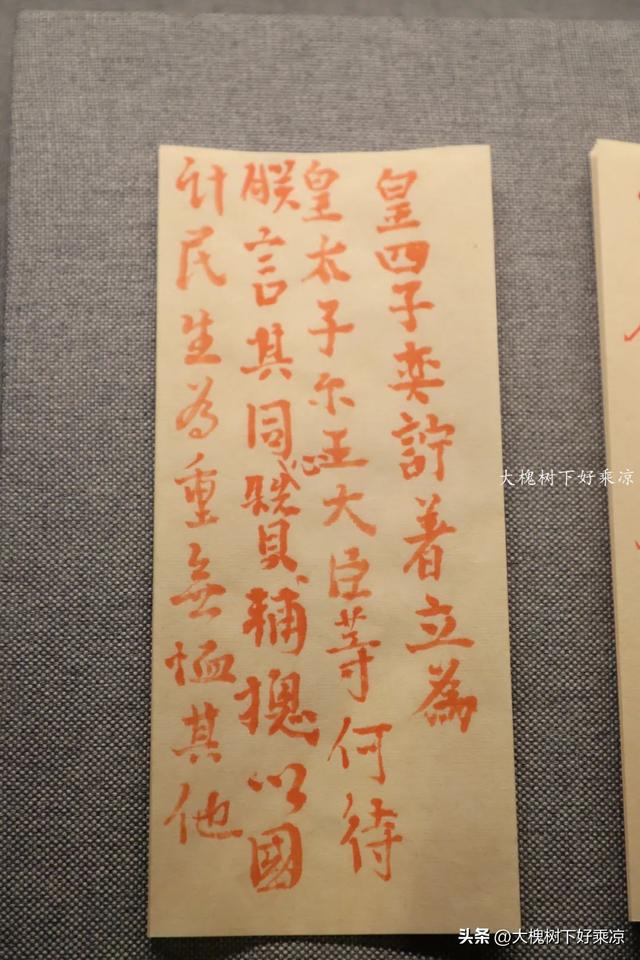 皇四子奕詝着立為
皇太子尔王大臣等何待
朕言其同心贊輔捴以國
計民生為重無恤其他
大槐树下好乘凉
头条 @大槐树下好乘凉